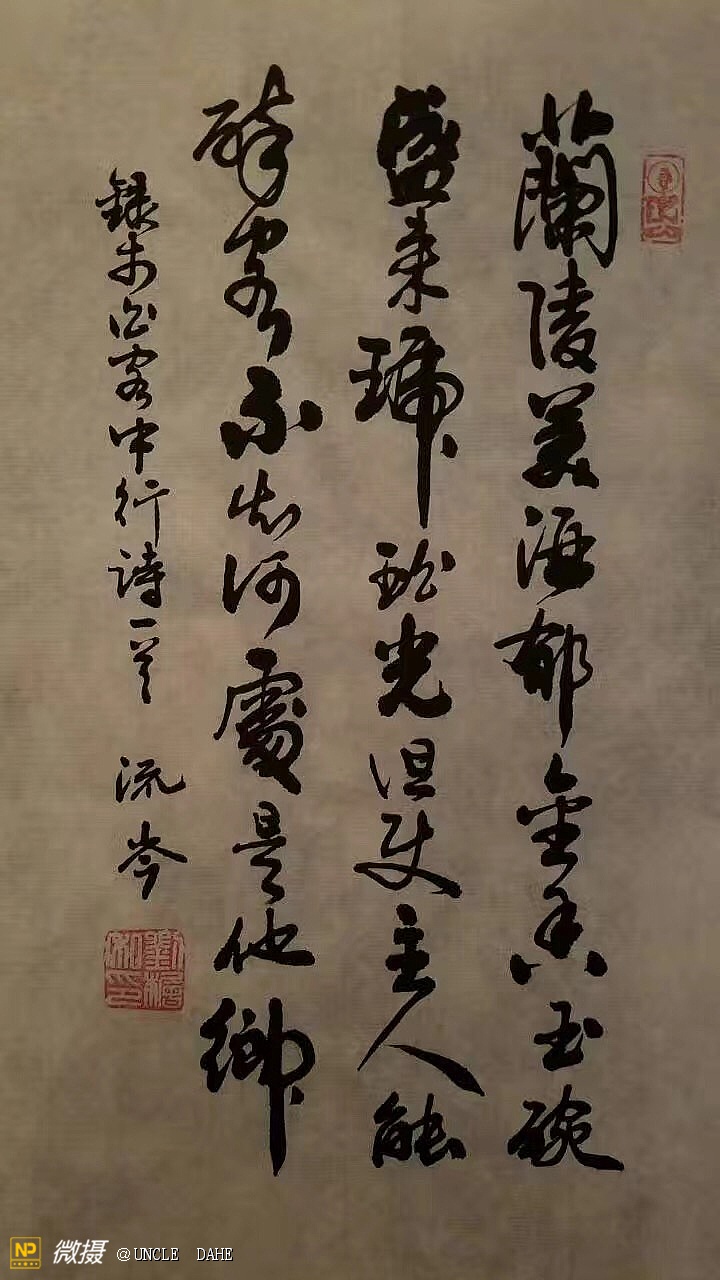 蘭陵美酒郁金香玉碗
盛来琥珀光但使主人能
醉客不知何處是他鄉
録李白客中行詩一首 流岑
NP 微摄 @UNCLE DAHE